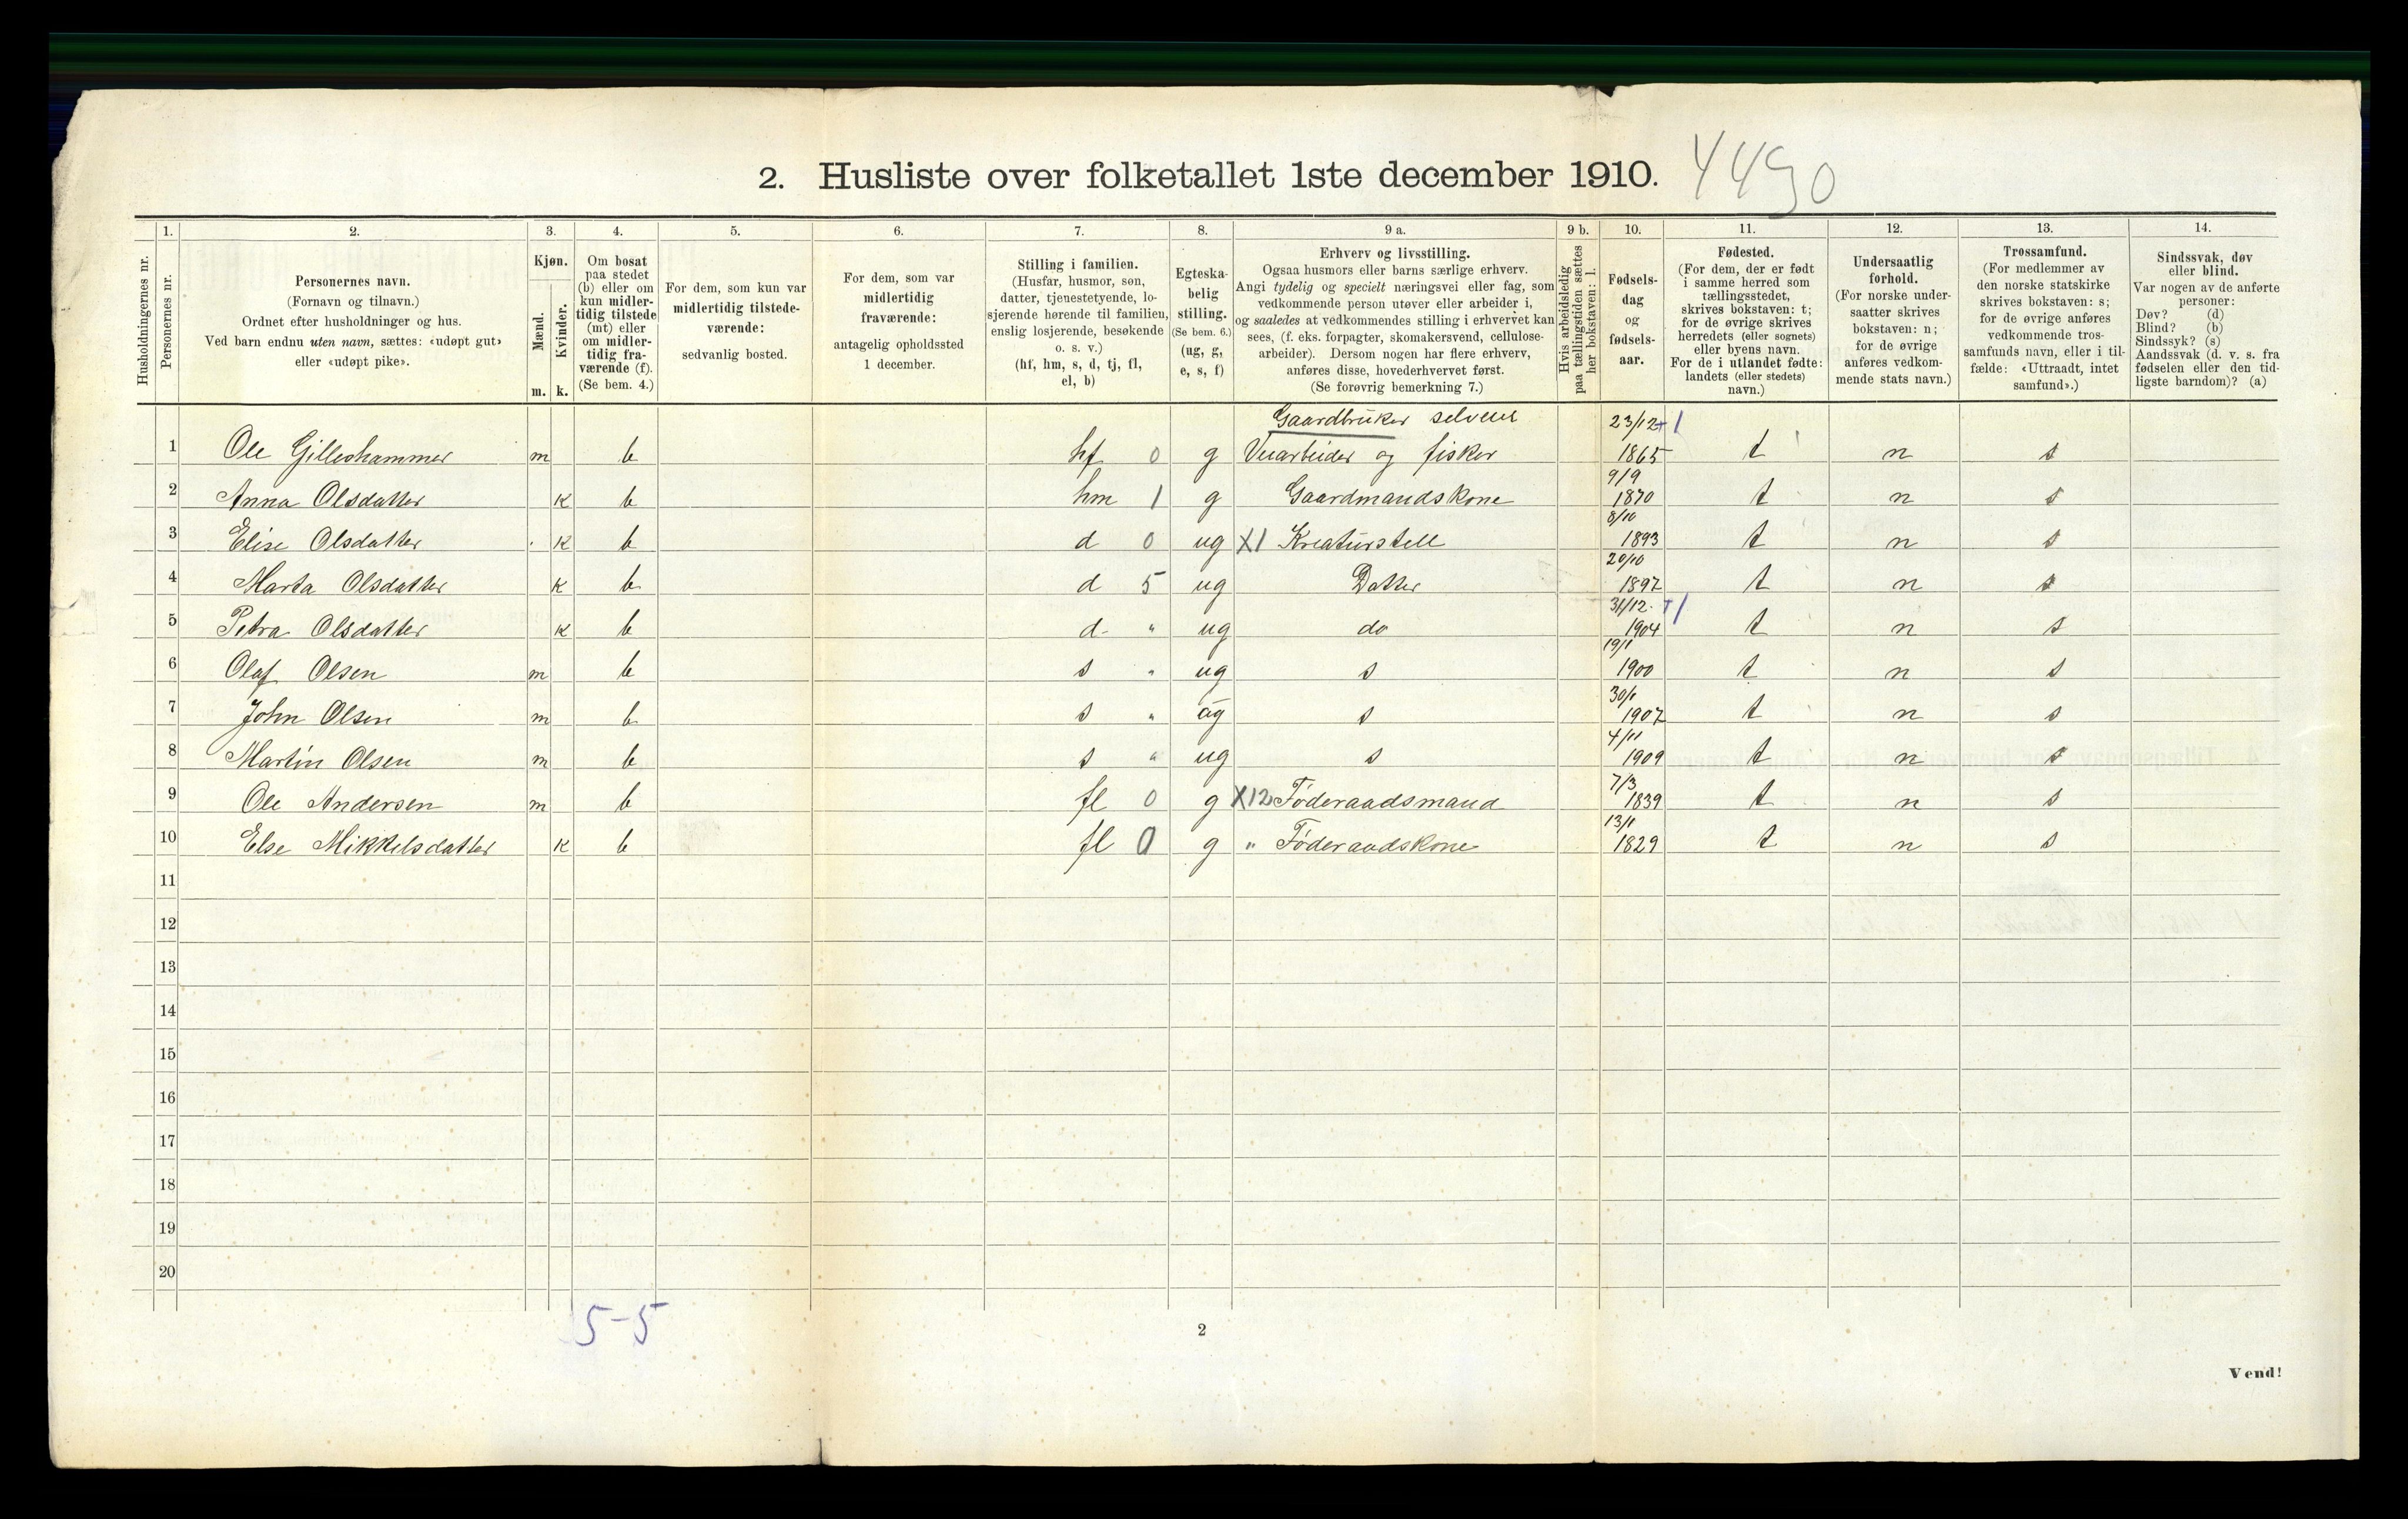 2. Husliste over folketallet 1ste december 1910. 4490
1. 2. 3. 4. 5. 6. 7. 8. 9 a. 9 b. 10. 11. 12. 13. 14.
Husholdningernes nr.
Personernes nr.
Personernes navn.
(Fornavn og tilnavn.)
Ordnet efter husholdninger og hus.
Ved barn endnu uten navn, sættes: «udøpt gut»
eller «udøpt pike».
Kjøn.
Mænd.
Kvinder.
m. k.
Om bosat
paa stedet
(b) eller om
kun midler-
tidig tilstede
(mt) eller
om midler-
tidig fra-
værende (f).
(Se bem. 4.)
For dem, som kun var
midlertidig tilstede-
værende:
sedvanlig bosted.
For dem, som var
midlertidig
fraværende:
antagelig opholdssted
1 december.
Stilling i familien.
(Husfar, husmor, søn,
datter, tjenestetyende, lo-
sjerende hørende til familien,
enslig losjerende, besøkende
o. s. v.)
(hf, hm, s, d, tj, fl,
el, b)
Egteska-
belig
stilling.
(Se bem. 6.)
(ug, g,
e, s, f)
Erhverv og livsstilling.
Ogsaa husmors eller barns særlige erhverv.
Angi tydelig og specielt næringsvei eller fag, som
vedkommende person utøver eller arbeider i,
og saaledes at vedkommendes stilling i erhvervet kan
sees, (f. eks. forpagter, skomakersvend, cellulose-
arbeider). Dersom nogen har flere erhverv,
anføres disse, hovederhvervet først.
(Se forøvrig bemerkning 7.)
Hvis arbeidsledig
paa tællingstiden sættes
her bokstaven: l.
Fødsels-
dag
og
fødsels-
aar.
Fødested.
(For dem, der er født
i samme herred som
tællingsstedet,
skrives bokstaven: t;
for de øvrige skrives
herredets (eller sognets)
eller byens navn.
For de i utlandet fødte:
landets (eller stedets)
navn.)
Undersaatlig
forhold.
(For norske under-
saatter skrives
bokstaven: n;
for de øvrige
anføres vedkom-
mende stats navn.)
Trossamfund.
(For medlemmer av
den norske statskirke
skrives bokstaven: s;
for de øvrige anføres
vedkommende tros-
samfunds navn, eller i til-
fælde: «Uttraadt, intet
samfund».)
Sindssvak, døv
eller blind.
Var nogen av de anførte
personer:
Døv? (d)
Blind? (b)
Sindssyk? (s)
Aandssvak (d. v. s. fra
fødselen eller den tid-
ligste barndom)? (a)
Gaardbruker selveier 23/12 + 1
1 Ole Gilleshammer m b hf 0 g Veiarbeider og fisker 1865 t n s
9/9
2 Anna Olsdatter k b hm 1 g Gaardmandskone 1870 t n s
8/10
3 Elise Olsdatter k b d 0 ug X1 Kreaturstell 1893 t n s
20/10
4 Marta Olsdatter k b d 5 ug Datter 1897 t n s
31/12 + 1
5 Petra Olsdatter k b d " ug do 1904 t n s
19/1
6 Olaf Olsen m b s " ug s 1900 t n s
30/1
7 John Olsen m b s " ug s 1907 t n s
4/11
8 Martin Olsen m b s " ug s 1909 t n s
7/3
9 Ole Andersen m b fl 0 g X12 Føderaadsmand 1839 t n s
13/1
10 Else Mikkelsdatter k b fl 0 g " Føderaadskone 1829 t n s
11
12
13
14
15
16
17
18
19
20
5-5
2
Vend!